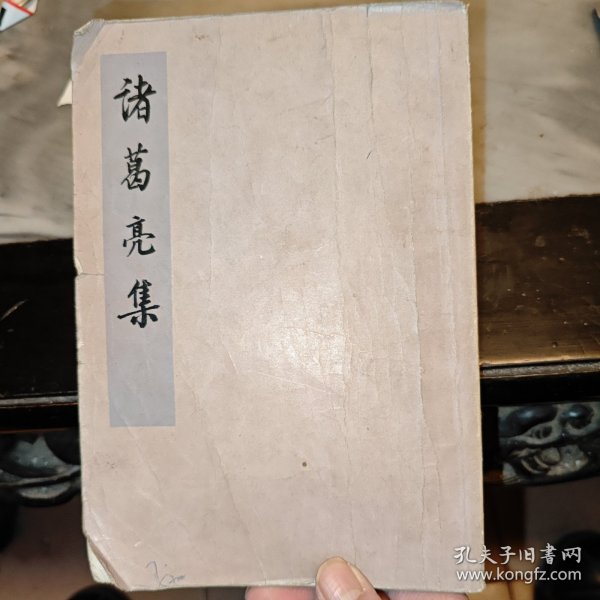 诸葛亮集
孔夫子旧書网
www.kongfz.com